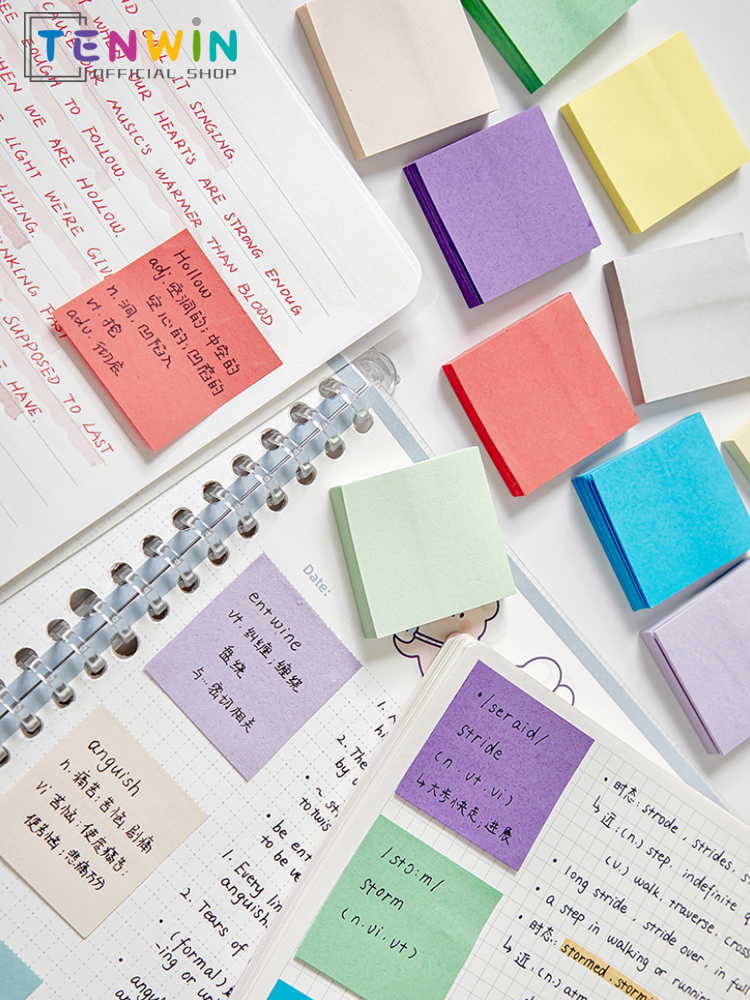 TENWIN
OFFICIAL SHOP
IT SINGING.
OUR HEART'S ARE STRONG ENOUG
MUSIC'S WARMER THAN BLOOD
TO FOLLOW.
WE ARE HOLLOW.
LIGHT WE'RE GIV
LIVING.
SUPPOSED TO LAST
HAVE.
Hollow
adj. 空洞的; 中空的
空心的; 凹陷的
n. 洞, 凹陷入
vt. 挖
adv. 彻底
Date:
entwine
vt. 纠缠; 缠绕
盘绕
与...密切相关
anguish
n. 痛苦; 苦恼; 剧痛
vi 苦恼; 使度痛苦;
使苦恼; 悲痛万分
2. The
by u
~ st
to twis
• be ent
to be w
1. Every lin
anguish.
2. Tears of
• (formal)
-ing or un
• angui
• /seraid/
stride
(n. vt. vi)
↳ 大步快走; 进展
/stɔ:m/
storm
(n. vi. vt)
• 时态: strode, strides, s
↳ 近: (n.) step, indefinite
(v.) walk, traverse, cross
• long stride, stride over, in full
• a step in walking or runnin
• 时态: stormed. storm
↳ 近: (n.) atm